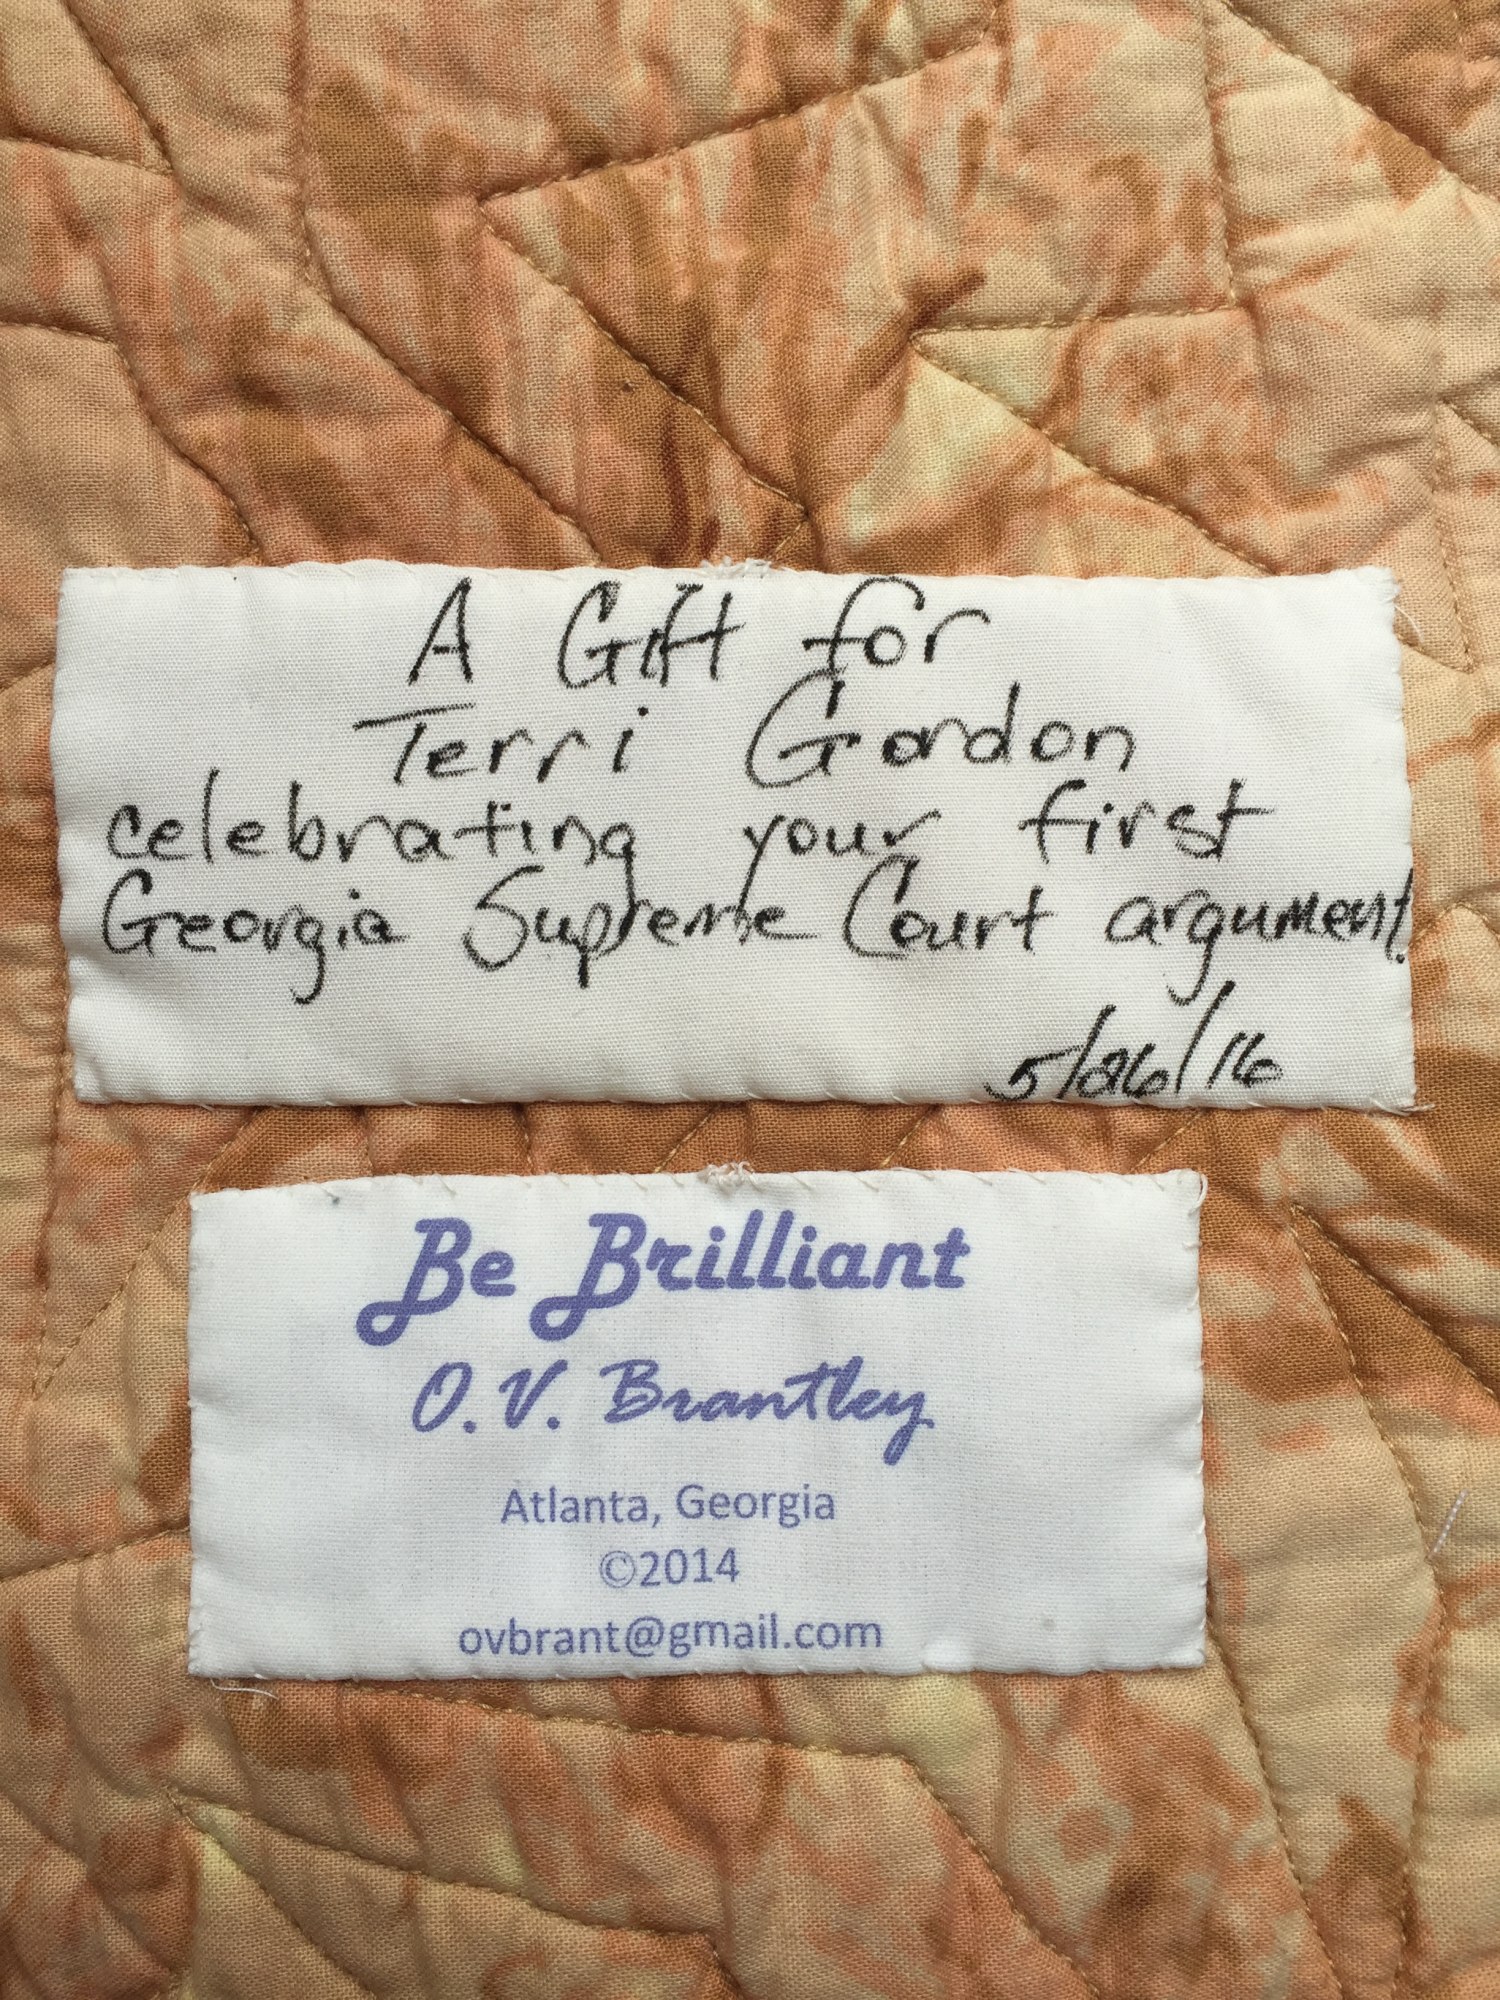 A Gift for
Terri Gordon
celebrating your first
Georgia Supreme Court argument.
5/26/16
Be Brilliant
O.V. Brantley
Atlanta, Georgia
©2014
ovbrant@gmail.com